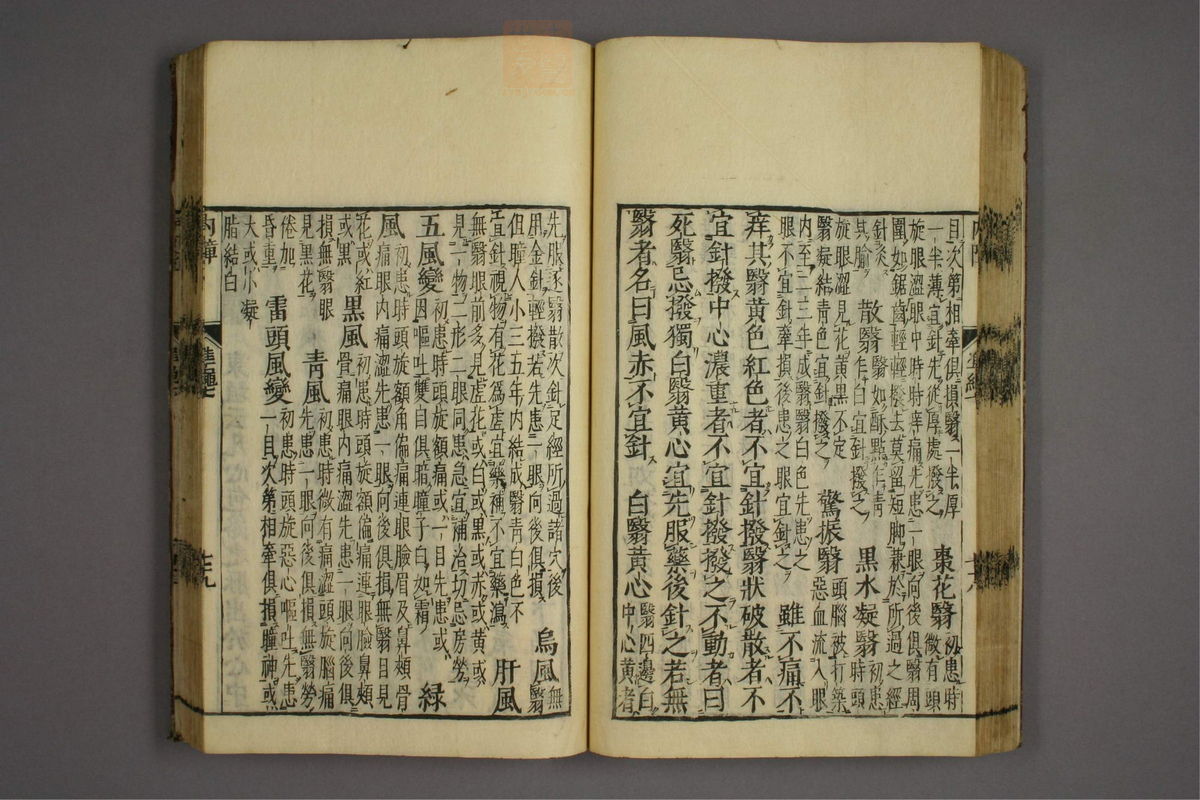 目次第相牽俱損翳一半厚
一半薄宜針先從厚處撥之
棗花翳
初患時
微有頭
旋眼澀眼中時時痒痛先患一眼向後俱翳周
圍如鋸齒輕輕撥去莫留短脚兼於所過之經
針灸
其腧
散翳
翳如酥點乍青
乍白宜針撥之
黑水凝翳
初患
時頭
旋眼澀見花黃黑不定
翳凝結青色宜針撥之
驚振翳
頭腦被打築
惡血流入眼
內至二三年成翳翳白色先患之
眼不宜針牽損後患之眼宜針之
雖不痛不
痒其翳黃色紅色者不宜針撥翳狀破散者不
宜針撥中心濃重者不宜針撥撥之不動者曰
死翳忌撥獨白翳黃心宜先服藥後針之若無
翳者名曰風赤不宜針
白翳黃心
翳四邊白
中心黃者
先服逐翳散次針足經所過諸穴後
用金針輕撥若先患一眼向後俱損
烏風
無
翳
但瞳人小三五年內結成翳青白色不
宜針視物有花爲虛宜藥補不宜藥瀉
肝風
無翳眼前多見虛花或白或黑或赤或黃或
見一物二形二眼同患急宜補治切忌房勞
五風變
初患時頭旋額痛或一目先患或
因嘔吐雙目俱暗瞳子白如霜
緑
風
初患時頭旋額角偏痛連眼臉眉及鼻頰骨
痛眼內痛澀先患一眼向後俱損無翳目見
花或紅
或黑
黑風
初患時頭旋額偏痛連眼臉鼻頰
骨痛眼內痛澀先患一眼向後俱
損無翳眼
見黑花
青風
初患時微有痛澀頭旋腦痛
先患一眼向後俱損無翳勞
倦加
昏重
雷頭風變
初患時頭旋惡心嘔吐先患
一目次第相牽俱損瞳神或
大或小凝
脂結白
內障